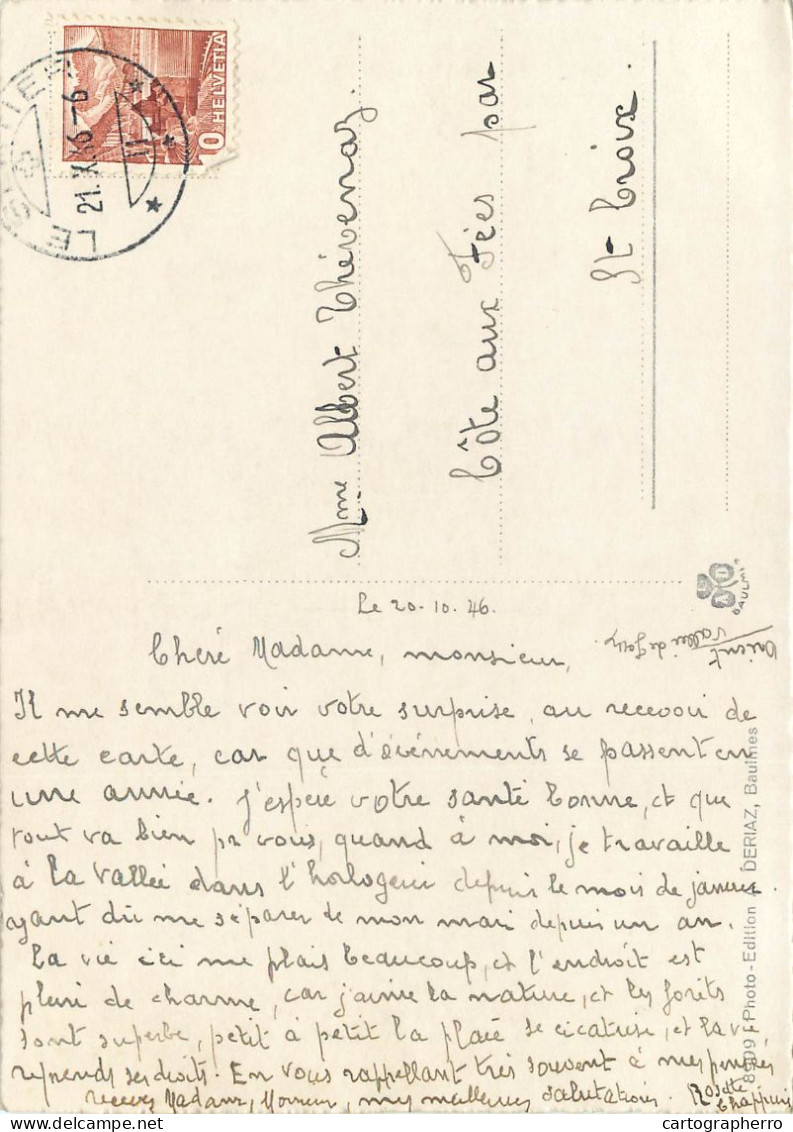 LE
21.X.46-6
HELVETIA
10
Mme Albert Thévenaz.
Côte aux Fées par
St-Croix.
BAULMES
Orient
Vallée de Joux.
Le 20-10.46.
Chère Madame, monsieur,
Il me semble voir votre surprise, au recevoir de
cette carte, car que d'événements se passent en
une année. J'espère votre santé bonne, et que
tout va bien pr vous, quand à moi, je travaille
à la Vallée dans l'horlogerie depuis le mois de janvier.
ayant dû me séparer de mon mari depuis un an.
La vie ici me plais beaucoup, et l'endroit est
plein de charme, car j'aime la nature, et les forêts
sont superbe, petit à petit la plaie se cicatrise, et la vie
reprends ses droits. En vous rappellant très souvent à mes pensées
recevez Madame, Monsieur, mes meilleures salutations. Rosette
Chappuis
Photo-Edition A. DERIAZ, Baulmes
delcampe.net
cartographerro